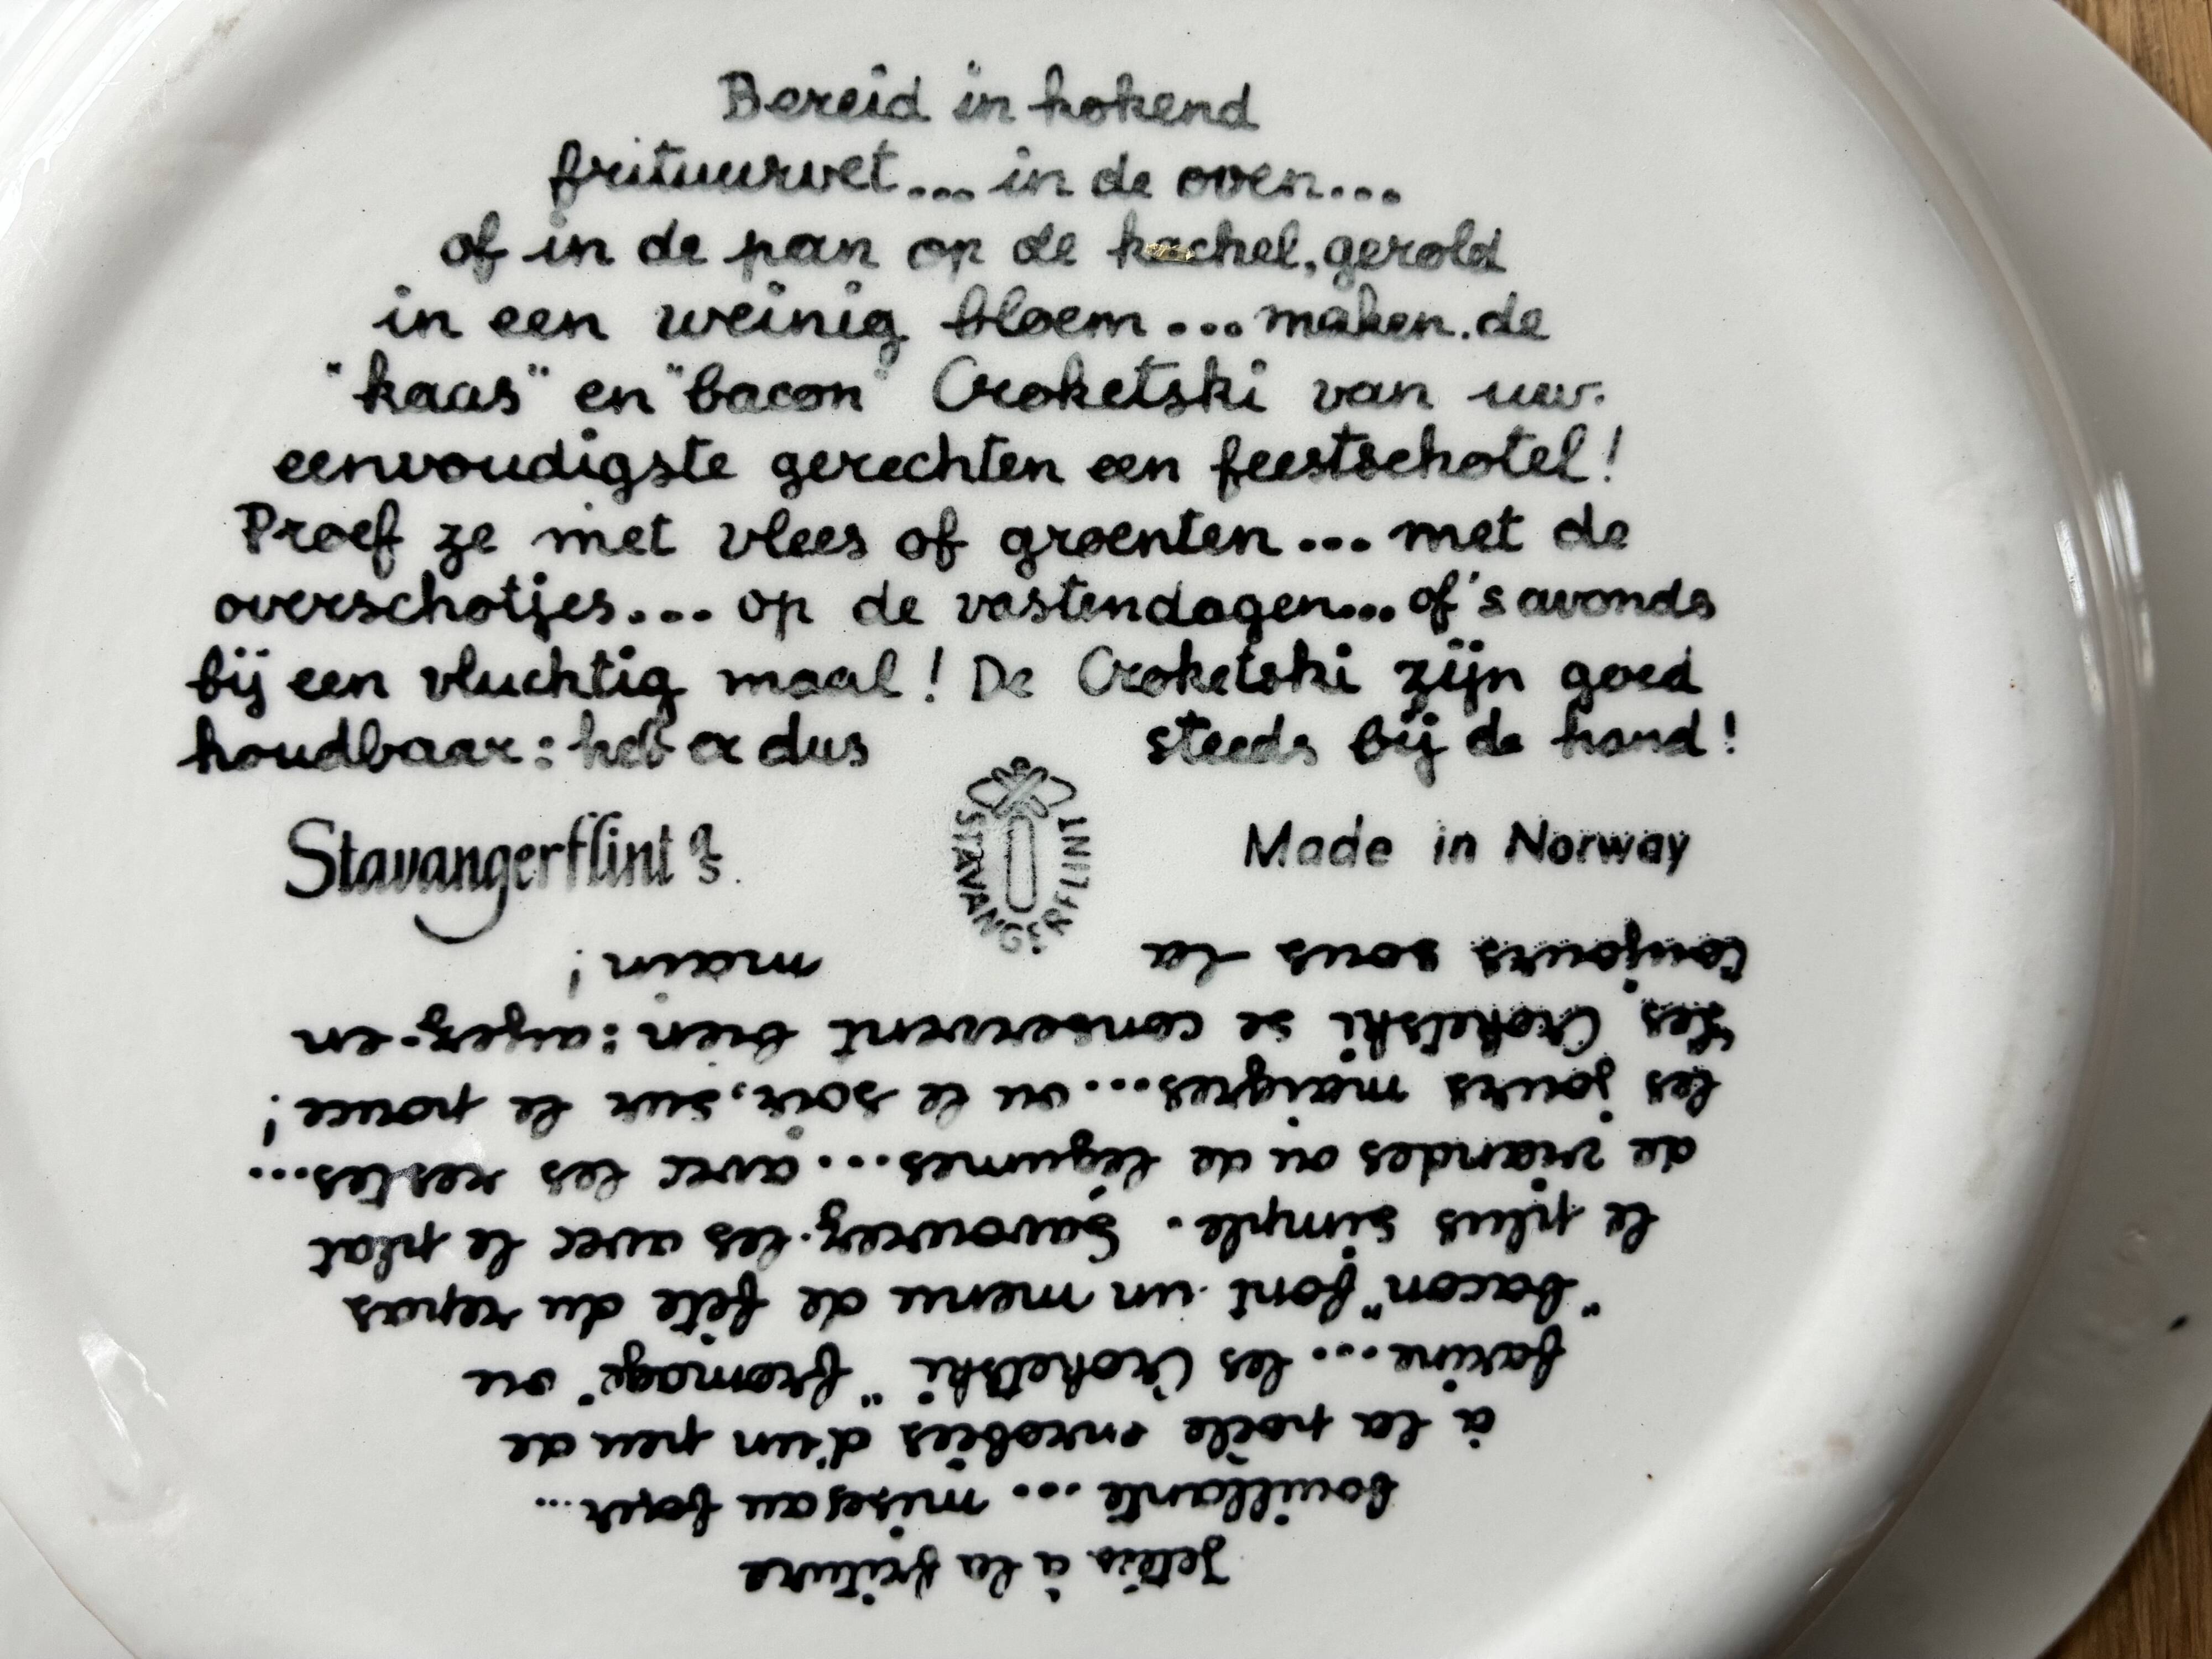 Bereid in kokend
frituurvet... in de oven...
of in de pan op de kachel, gerold
in een weinig bloem... maken de
"kaas" en "bacon" Croketski van uw
eenvoudigste gerechten een feestschotel!
Proef ze met vlees of groenten... met de
overschotjes... op de vastendagen... of 's avonds
bij een vluchtig maal! De Croketski zijn goed
houdbaar: heb er dus steeds bij de hand!
Stavangerflint a/s.
STAVANGERFLINT
Made in Norway
Jetés à la friture
bouillante... mises au four...
à la poêle enrobées d'un peu de
farine... les Croketski "fromage" ou
"bacon" font un menu de fête du repas
le plus simple. Savourez-les avec le plat
de viandes ou de légumes... avec les restes...
les jours maigres... ou le soir, sur le pouce!
Les Croketski se conservent bien: ayez-en
toujours sous la main!